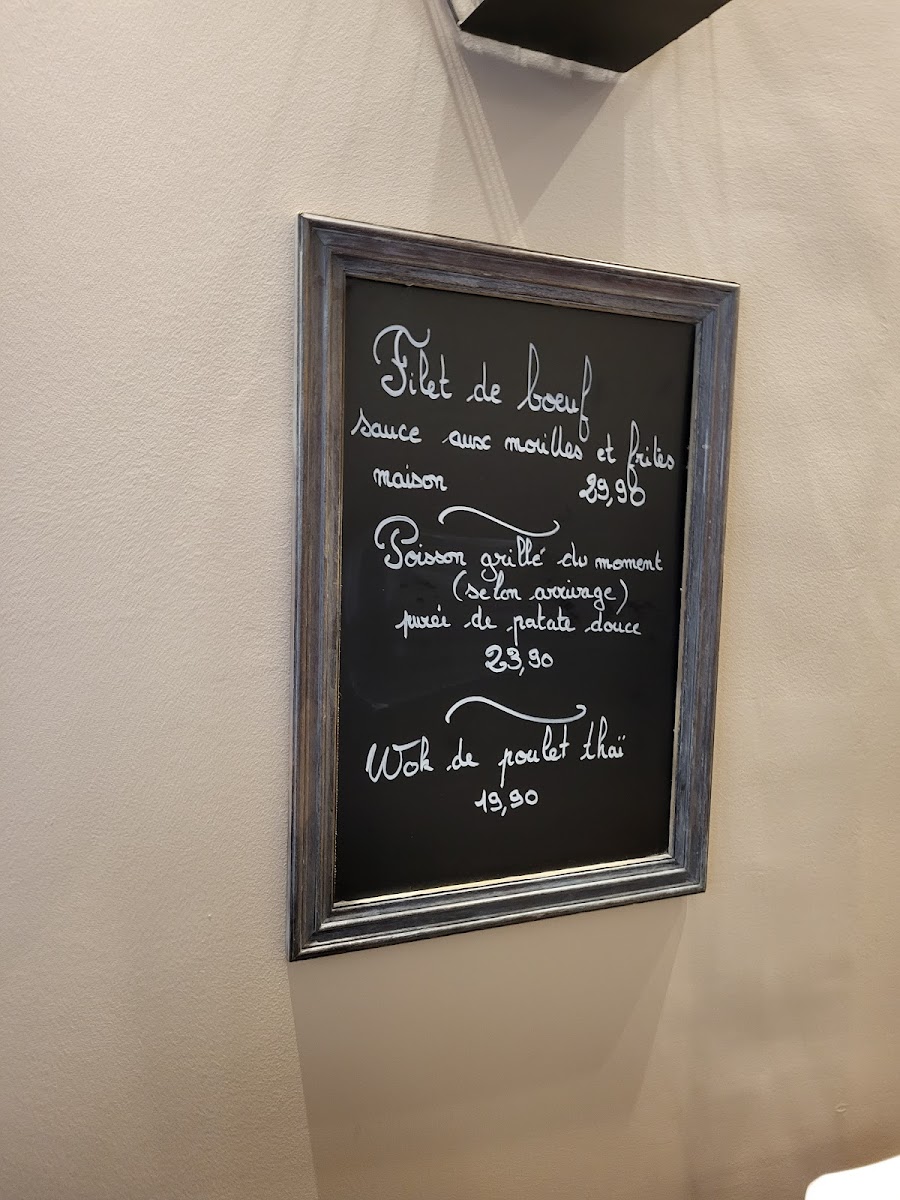 Filet de boeuf
sauce aux morilles et frites
maison 29,90
Poisson grillé du moment
(selon arrivage)
purée de patate douce
23,90
Wok de poulet thaï
19,90